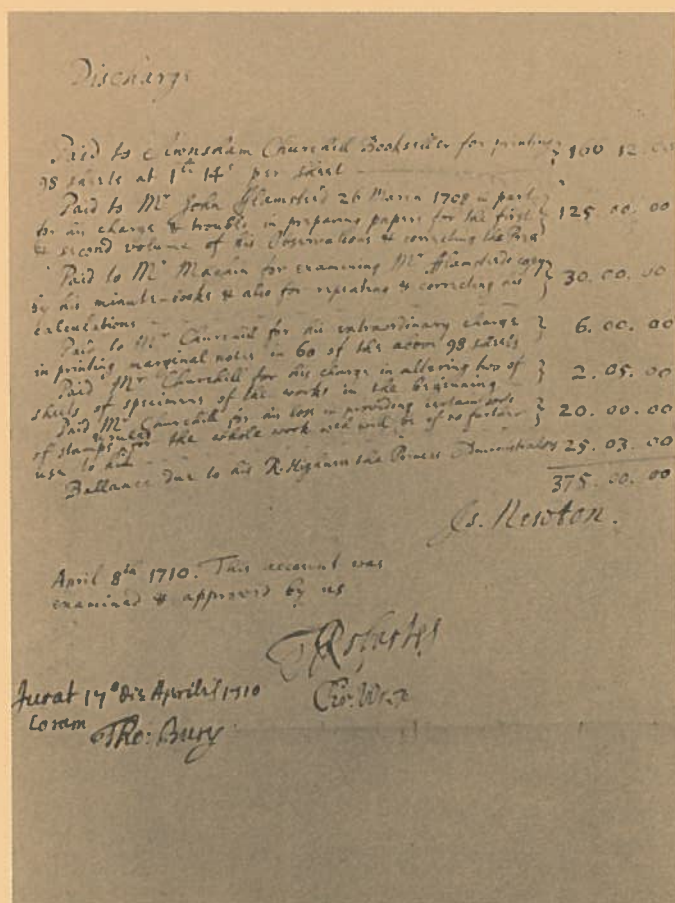 Discharge
Paid to Awnsham Churchill Bookseller for printing } 100 12 00
98 sheets at 1lb 14s per sheet
Paid to Mr John Flamsteed 26 March 1708 in part
for his charge & trouble in preparing papers for the first } 125. 00. 00
& second volume of his Observations & correcting the
Paid to Mr Machin for examining Mr Flamsteeds copy
by his minute-books & also for repeating & correcting his } 30. 00. 00
calculations
Paid to Mr Churchill for his extraordinary charge } 6. 00. 00
in printing marginal notes in 60 of the above 98 sheets
Paid Mr Churchill for his charge in altering two of } 2. 05. 00
sheets of specimens of the works in the beginning
Paid Mr Churchill for his loss in providing certain sorts } 20. 00. 00
of stamps for the whole work wch will be of no further
use to him
Ballance due to his R. Highness the Princes Administrators 25. 03. 00
375. 00. 00
Is. Newton.
April 8th 1710. This account was
examined & approved by us
Chr: Wren
Jurat 17o die Aprilis 1710
Coram
Tho: Bury